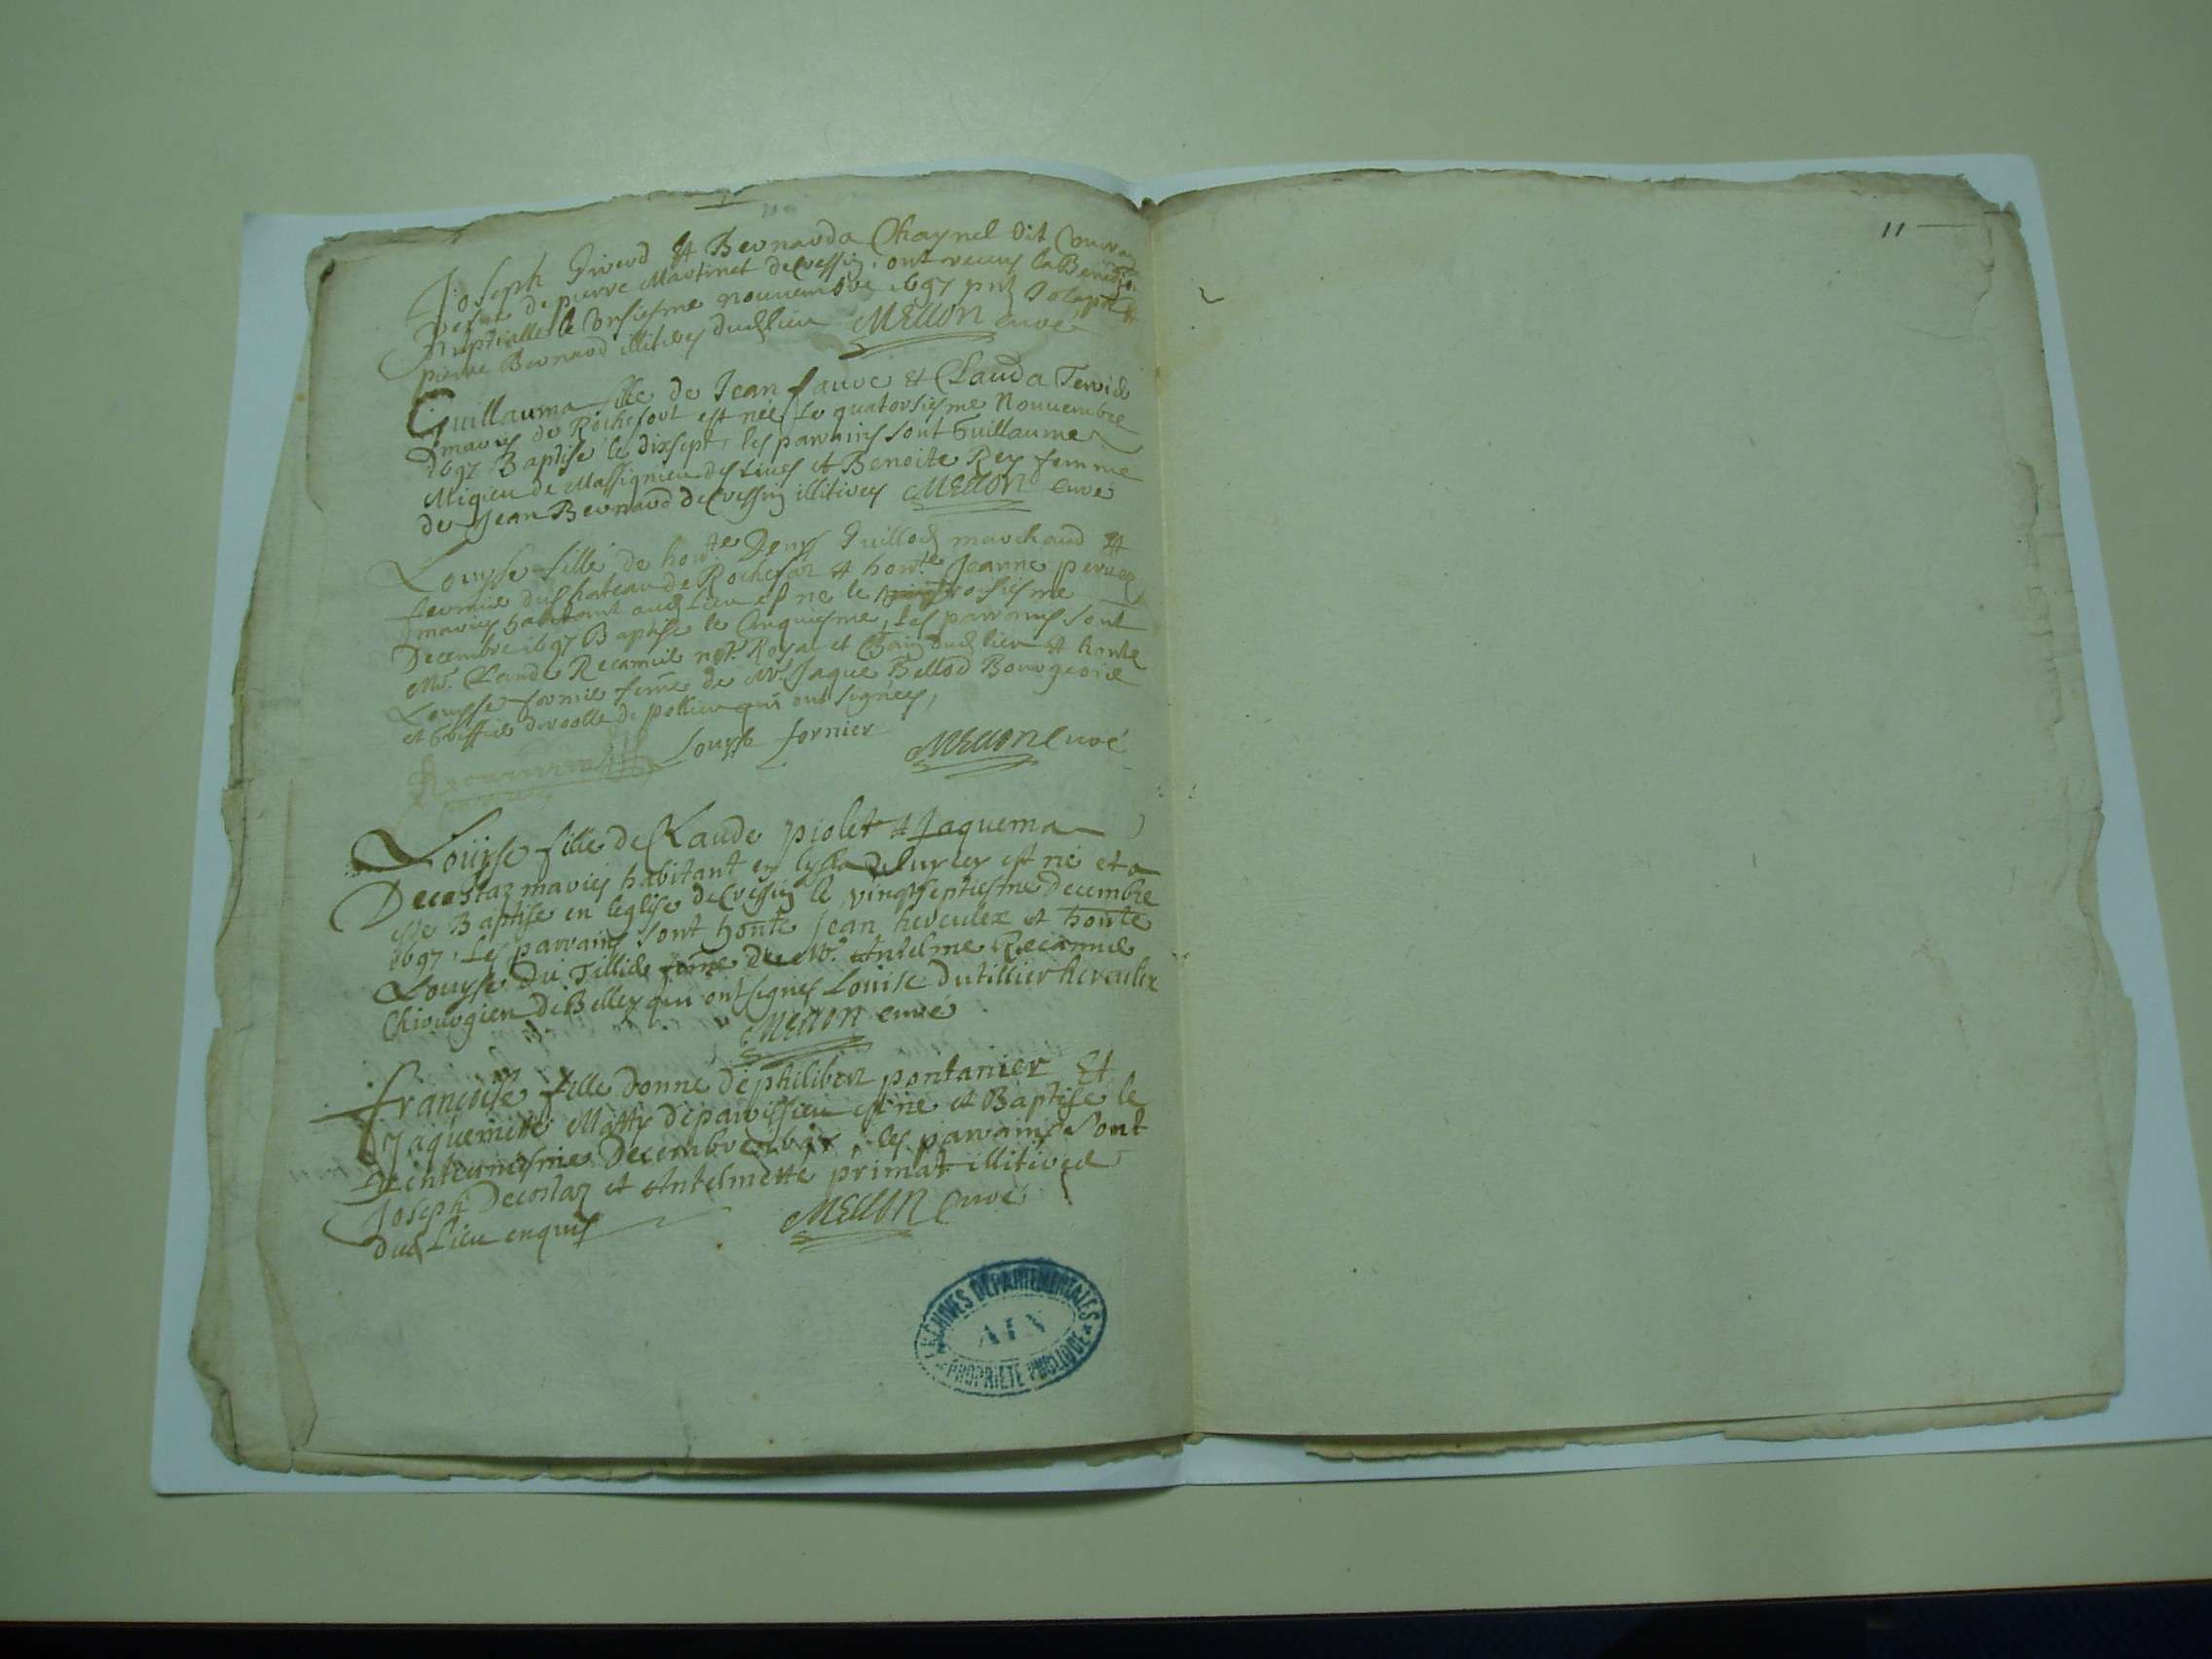 11
Joseph Giverd et Bernarda Chaynel dit
de pierre Martinet de Cressin, ont receus la
Nuptialle le onsiesme nouuembre 1697 pnt Joseph et
pierre Bernard illitires dud lieu MELLON curé
Guillauma fille de Jean faure et Clauda
maries de Rochefort est née le quatorsiesme Nouuembre
1697 Baptise le dixsept, les parrains sont Guillaume
Migieu de Massignieu des Riues et Benoite Rey femme
de Jean Bernard de Cressin illitires MELLON curé
Louyse fille de honte Denys Guillod marchand et
fermier du Chateau de Rochefor et honte Jeanne
maries habitant aud Lieu est ne le troisiesme
Decembre 1697 Baptise le Cinquiesme, Les parrains sont
Mr. Claude Recamier not. Royal et Chain dud lieu et honte
Louyse fornier feme de Mr. Jaque Bellod Bourgeois
et Greffier de roolle de pollieu qui ont signées,
Louyse fornier MELLON Curé
Louyse fille de Claude piolet et Jaquema
Decostaz maries habitant en est né et a
esté Baptise en leglise de Cressin le vingtseptiesme Decembre
1697, Les parrains sont honte Jean herculex et honte
Louyse Du Tillier feme de Mr. Antelme Recamier
Chirurgien de Belley qui ont signes Louise Dutillier herculex
MELLON curé
francoise fille donné de philiber pontanier Et
Jaquemette Matty de parissieu est né et Baptise le
Decembre 1697, les parrains sont
Joseph Decostaz et Antelmette primat illitires
dud Lieu enquis MELLON Curé
ARCHIVES DEPARTEMENTALES
AIN
PROPRIETE PUBLIQUE